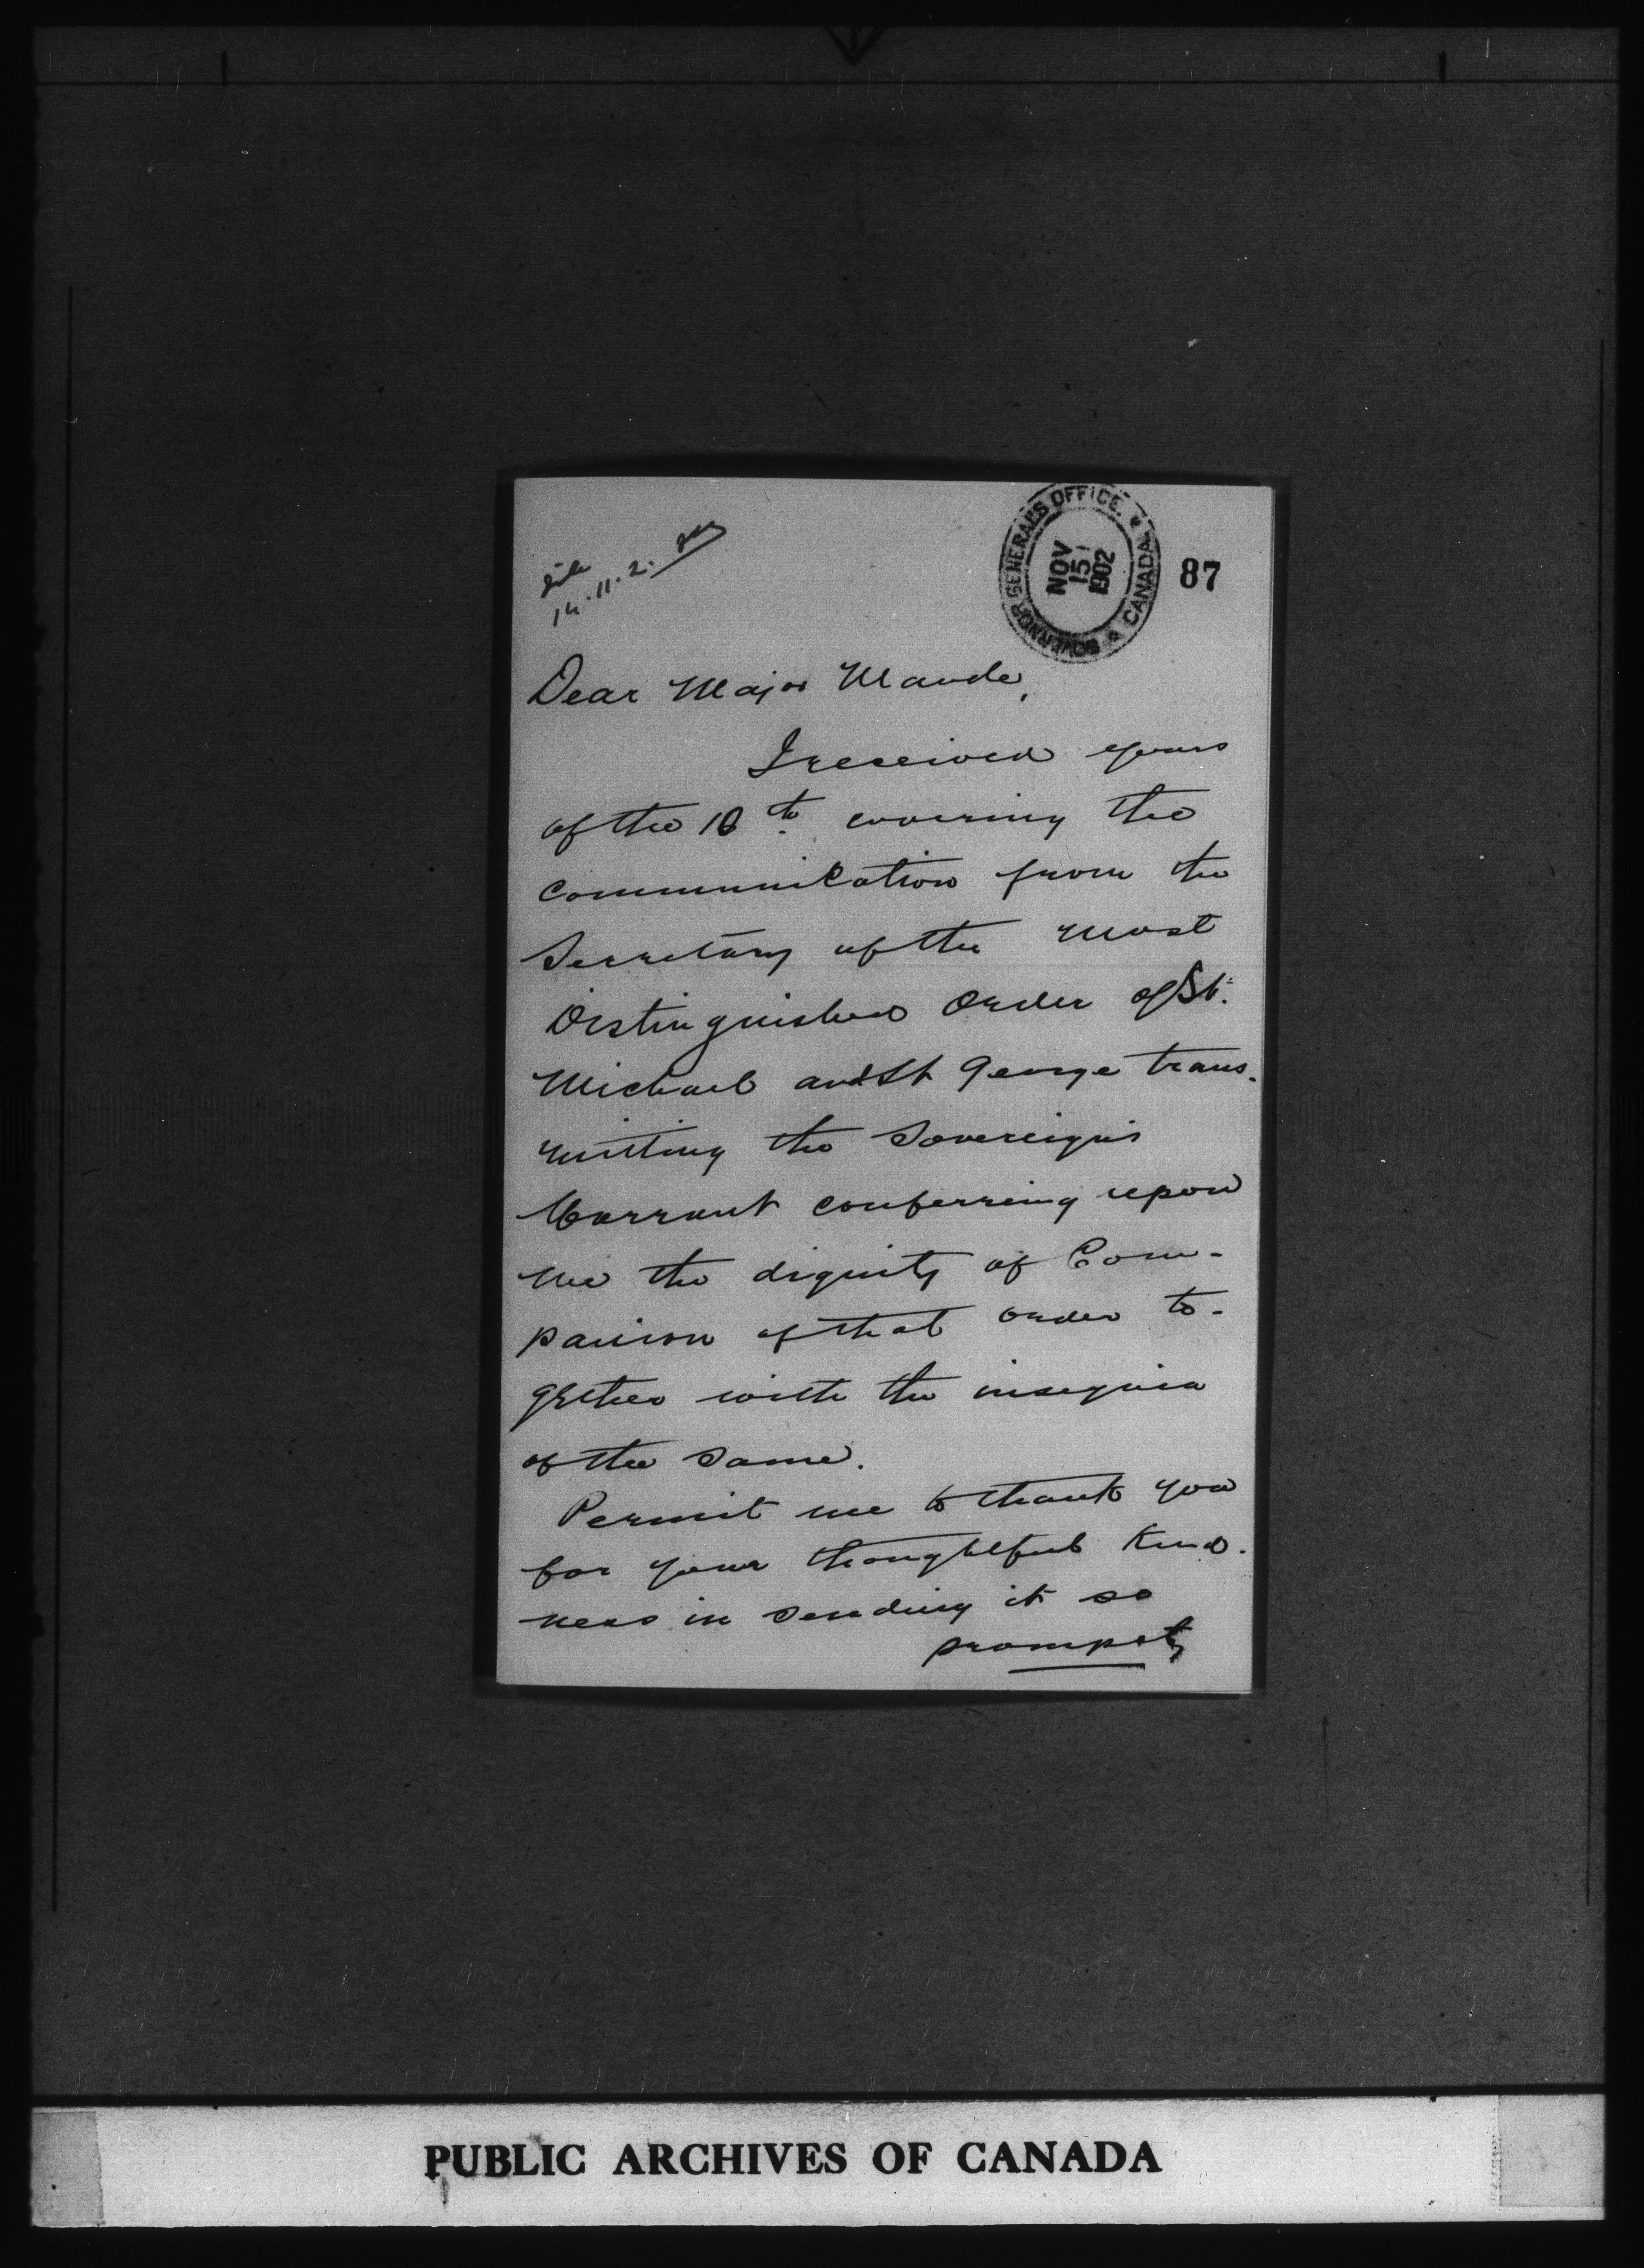 GOVERNOR GENERAL'S OFFICE.
CANADA
NOV
15
1902
87
14.11.2.
Dear Major Maude,
I received yours
of the 10th covering the
communication from the
Secretary of the Most
Distinguished Order of St.
Michael and St George trans-
mitting the Sovereign's
Warrant conferring upon
me the dignity of Com-
panion of that order to-
gether with the insignia
of the same.
Permit me to thank you
for your thoughtful kind-
ness in sending it so
promptly
PUBLIC ARCHIVES OF CANADA